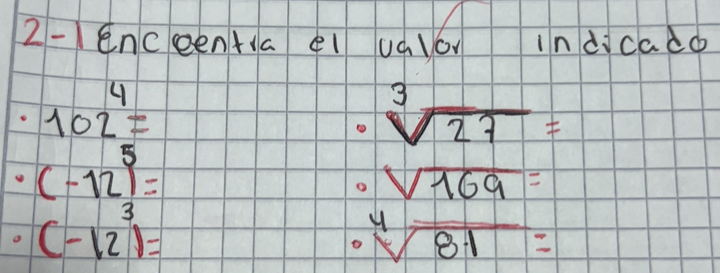 2-1 Encoentra el valor indicado
• 102⁴ = • ∛27 =
• (-12⁵) = • √169 =
• (-12³) = • ∜81 =